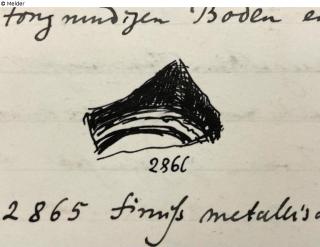 © Melder
tongrundigen Boden
2866
2865 Firniß metallisc